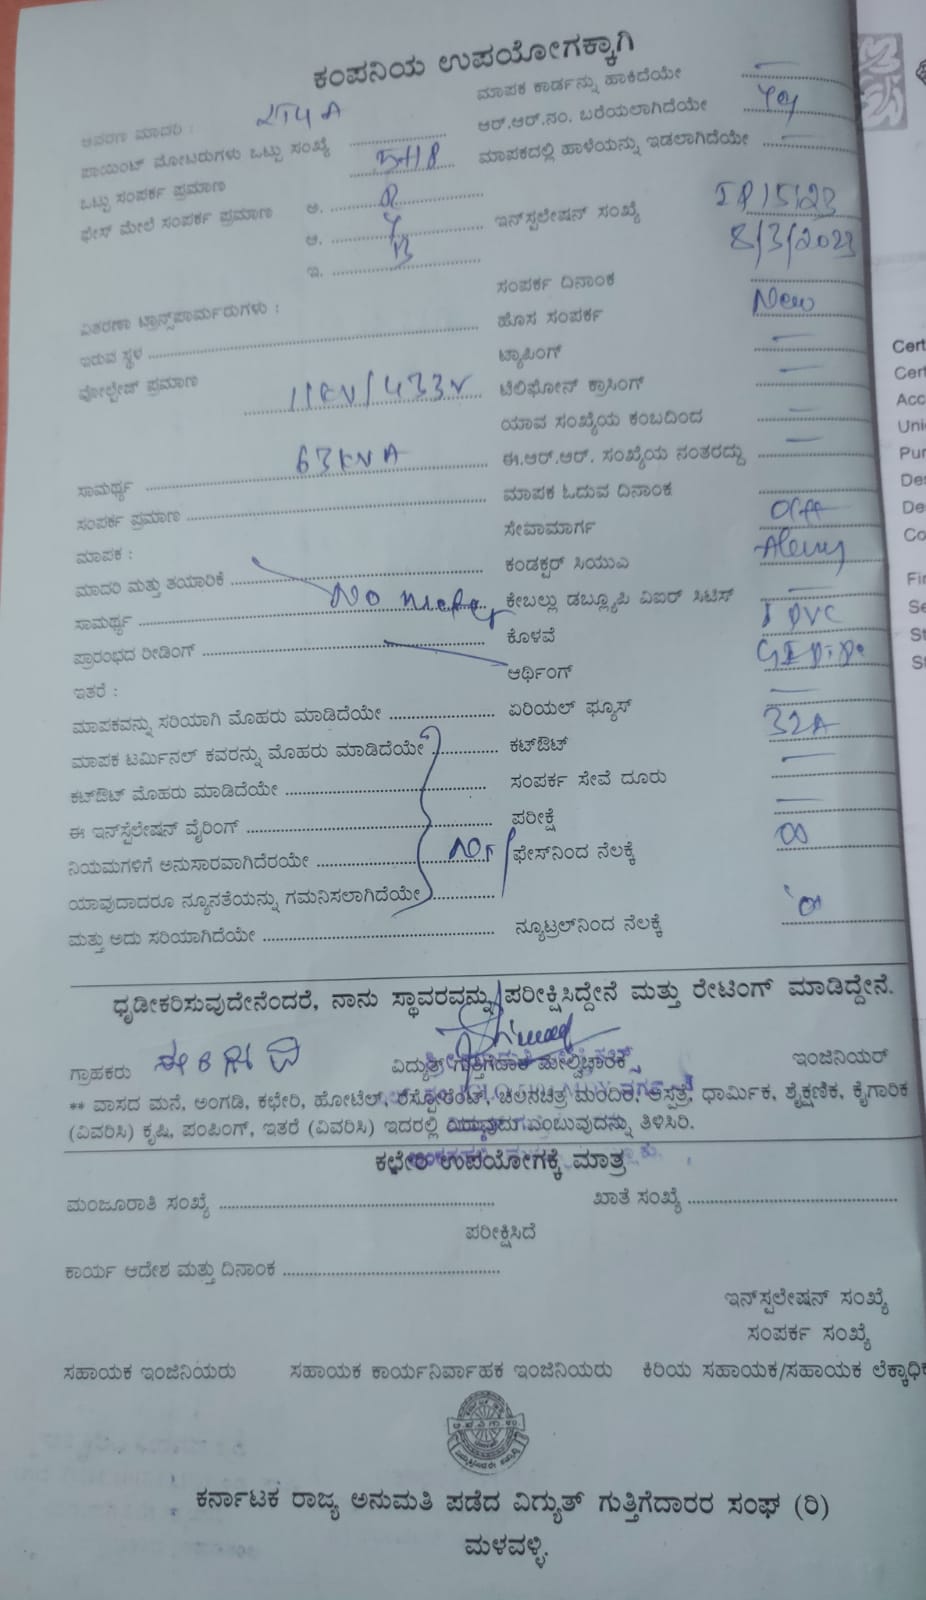 ಕಂಪನಿಯ ಉಪಯೋಗಕ್ಕಾಗಿ
ಮಾಪಕ ಕಾರ್ಡನ್ನು ಹಾಕಿದೆಯೇ
ಆವರಣ ಮಾದರಿ :
ಆರ್.ಆರ್.ನಂ. ಬರೆಯಲಾಗಿದೆಯೇ
ಪಾಯಿಂಟ್ ಮೋಟರುಗಳು ಒಟ್ಟು ಸಂಖ್ಯೆ
ಮಾಪಕದಲ್ಲಿ ಹಾಳೆಯನ್ನು ಇಡಲಾಗಿದೆಯೇ
ಒಟ್ಟು ಸಂಪರ್ಕ ಪ್ರಮಾಣ 5HP
ಫೇಸ್ ಮೇಲೆ ಸಂಪರ್ಕ ಪ್ರಮಾಣ ಅ. R
ಇನ್‌ಸ್ಪಲೇಷನ್ ಸಂಖ್ಯೆ
ಆ. Y
8/3/2023
ಇ. B
ಸಂಪರ್ಕ ದಿನಾಂಕ
ವಿತರಣಾ ಟ್ರಾನ್ಸ್‌ಪಾರ್ಮರುಗಳು :
ಹೊಸ ಸಂಪರ್ಕ New
ಇರುವ ಸ್ಥಳ
ಟ್ಯಾಪಿಂಗ್
ವೋಲ್ಟೇಜ್ ಪ್ರಮಾಣ 11KV/433V
ಟೆಲಿಫೋನ್ ಕ್ರಾಸಿಂಗ್
ಯಾವ ಸಂಖ್ಯೆಯ ಕಂಬದಿಂದ
ಸಾಮರ್ಥ್ಯ 63KVA
ಈ.ಆರ್.ಆರ್. ಸಂಖ್ಯೆಯ ನಂತರದ್ದು
ಸಂಪರ್ಕ ಪ್ರಮಾಣ
ಮಾಪಕ ಓದುವ ದಿನಾಂಕ
ಮಾಪಕ :
ಸೇವಾಮಾರ್ಗ
ಮಾದರಿ ಮತ್ತು ತಯಾರಿಕೆ
ಕಂಡಕ್ಟರ್ ಸಿಯುಎ
ಸಾಮರ್ಥ್ಯ No meter
ಕೇಬಲ್ಲು ಡಬ್ಲ್ಯೂಪಿ ವಿಐರ್ ಸಿಟಿಸ್
ಪ್ರಾರಂಭದ ರೀಡಿಂಗ್
ಕೊಳವೆ PVC
ಇತರೆ :
ಆರ್ಥಿಂಗ್
ಮಾಪಕವನ್ನು ಸರಿಯಾಗಿ ಮೊಹರು ಮಾಡಿದೆಯೇ
ಏರಿಯಲ್ ಫ್ಯೂಸ್
ಮಾಪಕ ಟರ್ಮಿನಲ್ ಕವರನ್ನು ಮೊಹರು ಮಾಡಿದೆಯೇ
ಕಟ್‌ಔಟ್ 32A
ಕಟ್‌ಔಟ್ ಮೊಹರು ಮಾಡಿದೆಯೇ
ಸಂಪರ್ಕ ಸೇವೆ ದೂರು
ಈ ಇನ್‌ಸ್ಪೆಲೇಷನ್ ವೈರಿಂಗ್
ಪರೀಕ್ಷೆ
ನಿಯಮಗಳಿಗೆ ಅನುಸಾರವಾಗಿದೆರಯೇ
ಫೇಸ್‌ನಿಂದ ನೆಲಕ್ಕೆ ∞
ಯಾವುದಾದರೂ ನ್ಯೂನತೆಯನ್ನು ಗಮನಿಸಲಾಗಿದೆಯೇ
ಮತ್ತು ಅದು ಸರಿಯಾಗಿದೆಯೇ
ನ್ಯೂಟ್ರಲ್‌ನಿಂದ ನೆಲಕ್ಕೆ
ಧೃಡೀಕರಿಸುವುದೇನೆಂದರೆ, ನಾನು ಸ್ಥಾವರವನ್ನು ಪರೀಕ್ಷಿಸಿದ್ದೇನೆ ಮತ್ತು ರೇಟಿಂಗ್ ಮಾಡಿದ್ದೇನೆ.
ಗ್ರಾಹಕರು ವಿದ್ಯುತ್ ಗುತ್ತಿಗೆದಾರ ಮೇಲ್ವಿಚಾರಕ ಇಂಜಿನಿಯರ್
** ವಾಸದ ಮನೆ, ಅಂಗಡಿ, ಕಛೇರಿ, ಹೋಟೆಲ್, ರೆಸ್ಟೋರೆಂಟ್, ಚಲನಚಿತ್ರ ಮಂದಿರ, ಆಸ್ಪತ್ರೆ, ಧಾರ್ಮಿಕ, ಶೈಕ್ಷಣಿಕ, ಕೈಗಾರಿಕ
(ವಿವರಿಸಿ) ಕೃಷಿ, ಪಂಪಿಂಗ್, ಇತರೆ (ವಿವರಿಸಿ) ಇದರಲ್ಲಿ ಯಾವುದು ಎಂಬುವುದನ್ನು ತಿಳಿಸಿರಿ.
ಕಛೇರಿ ಉಪಯೋಗಕ್ಕೆ ಮಾತ್ರ
ಮಂಜೂರಾತಿ ಸಂಖ್ಯೆ ಖಾತೆ ಸಂಖ್ಯೆ
ಪರೀಕ್ಷಿಸಿದೆ
ಕಾರ್ಯ ಆದೇಶ ಮತ್ತು ದಿನಾಂಕ
ಇನ್‌ಸ್ಪಲೇಷನ್ ಸಂಖ್ಯೆ
ಸಂಪರ್ಕ ಸಂಖ್ಯೆ
ಸಹಾಯಕ ಇಂಜಿನಿಯರು ಸಹಾಯಕ ಕಾರ್ಯನಿರ್ವಾಹಕ ಇಂಜಿನಿಯರು ಕಿರಿಯ ಸಹಾಯಕ/ಸಹಾಯಕ ಲೆಕ್ಕಾಧಿಕ
ಕರ್ನಾಟಕ ರಾಜ್ಯ ಅನುಮತಿ ಪಡೆದ ವಿದ್ಯುತ್ ಗುತ್ತಿಗೆದಾರರ ಸಂಘ (ರಿ)
ಮಳವಳ್ಳಿ.
Cert
Cert
Acc
Uni
Pur
Des
De
Co
Fir
Se
St
St